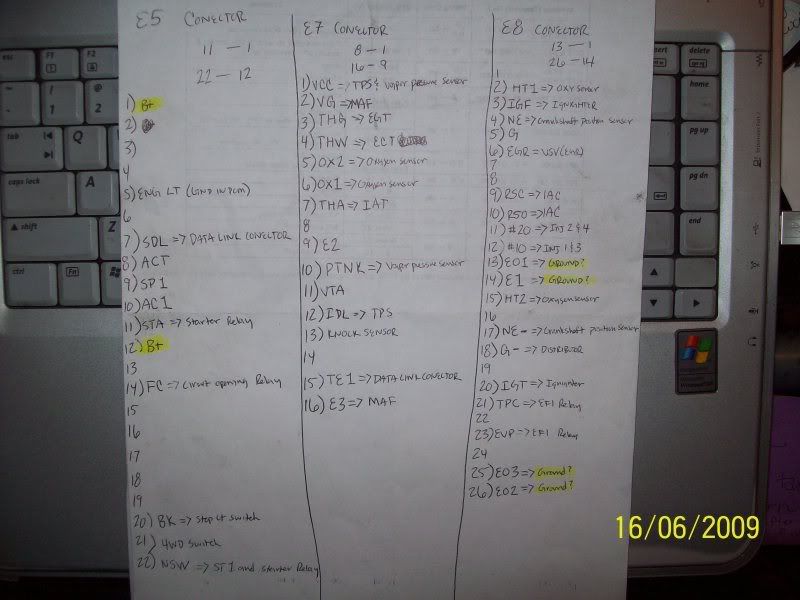 E5 CONECTOR
11 — 1
22 — 12
1) B+
2)
3)
4
5) ENG LT (GND IN PCM)
6
7) SDL => DATA LINK CONECTOR
8) ACT
9) SP1
10) AC1
11) STA => Starter Relay
12) B+
13
14) FC => Circuit opening Relay
15
16
17
18
19
20) BK => Stop Lt switch
21) 4WD Switch
22) NSW => ST1 and starter Relay
E7 CONECTOR
8 — 1
16 — 9
1) VCC => TPS & Vapor pressure sensor
2) VG => MAF
3) THG => EGT
4) THW => ECT
5) OX2 => Oxygen sensor
6) OX1 => Oxygen sensor
7) THA => IAT
8
9) E2
10) PTNK => Vapor pressure sensor
11) VTA
12) IDL => TPS
13) KNOCK SENSOR
14
15) TE1 => DATA LINK CONECTOR
16) E3 => MAF
E8 CONECTOR
13 — 1
26 — 14
1
2) HT1 => OXY sensor
3) IGF => IGNIGHTER
4) NE => Crankshaft Position sensor
5) G
6) EGR = VSV (EGR)
7
8
9) RSC => IAC
10) RSO => IAC
11) #20 => INJ 2 & 4
12) #10 => INJ 1 & 3
13) E01 => GROUND?
14) E1 => GROUND?
15) HT2 => Oxygen sensor
16
17) NE- => Crankshaft position sensor
18) G- => DISTRIBUTOR
19
20) IGT => Ignighter
21) TPC => EFI Relay
22
23) EVP => EFI Relay
24
25) E03 => Ground?
26) E02 => Ground?
esc
F1
F2
~
!
1
@
2
tab
Q
caps lock
A
shift
Z
ctrl
Fn
insert
delete
home
pg up
pg dn
end
16/06/2009